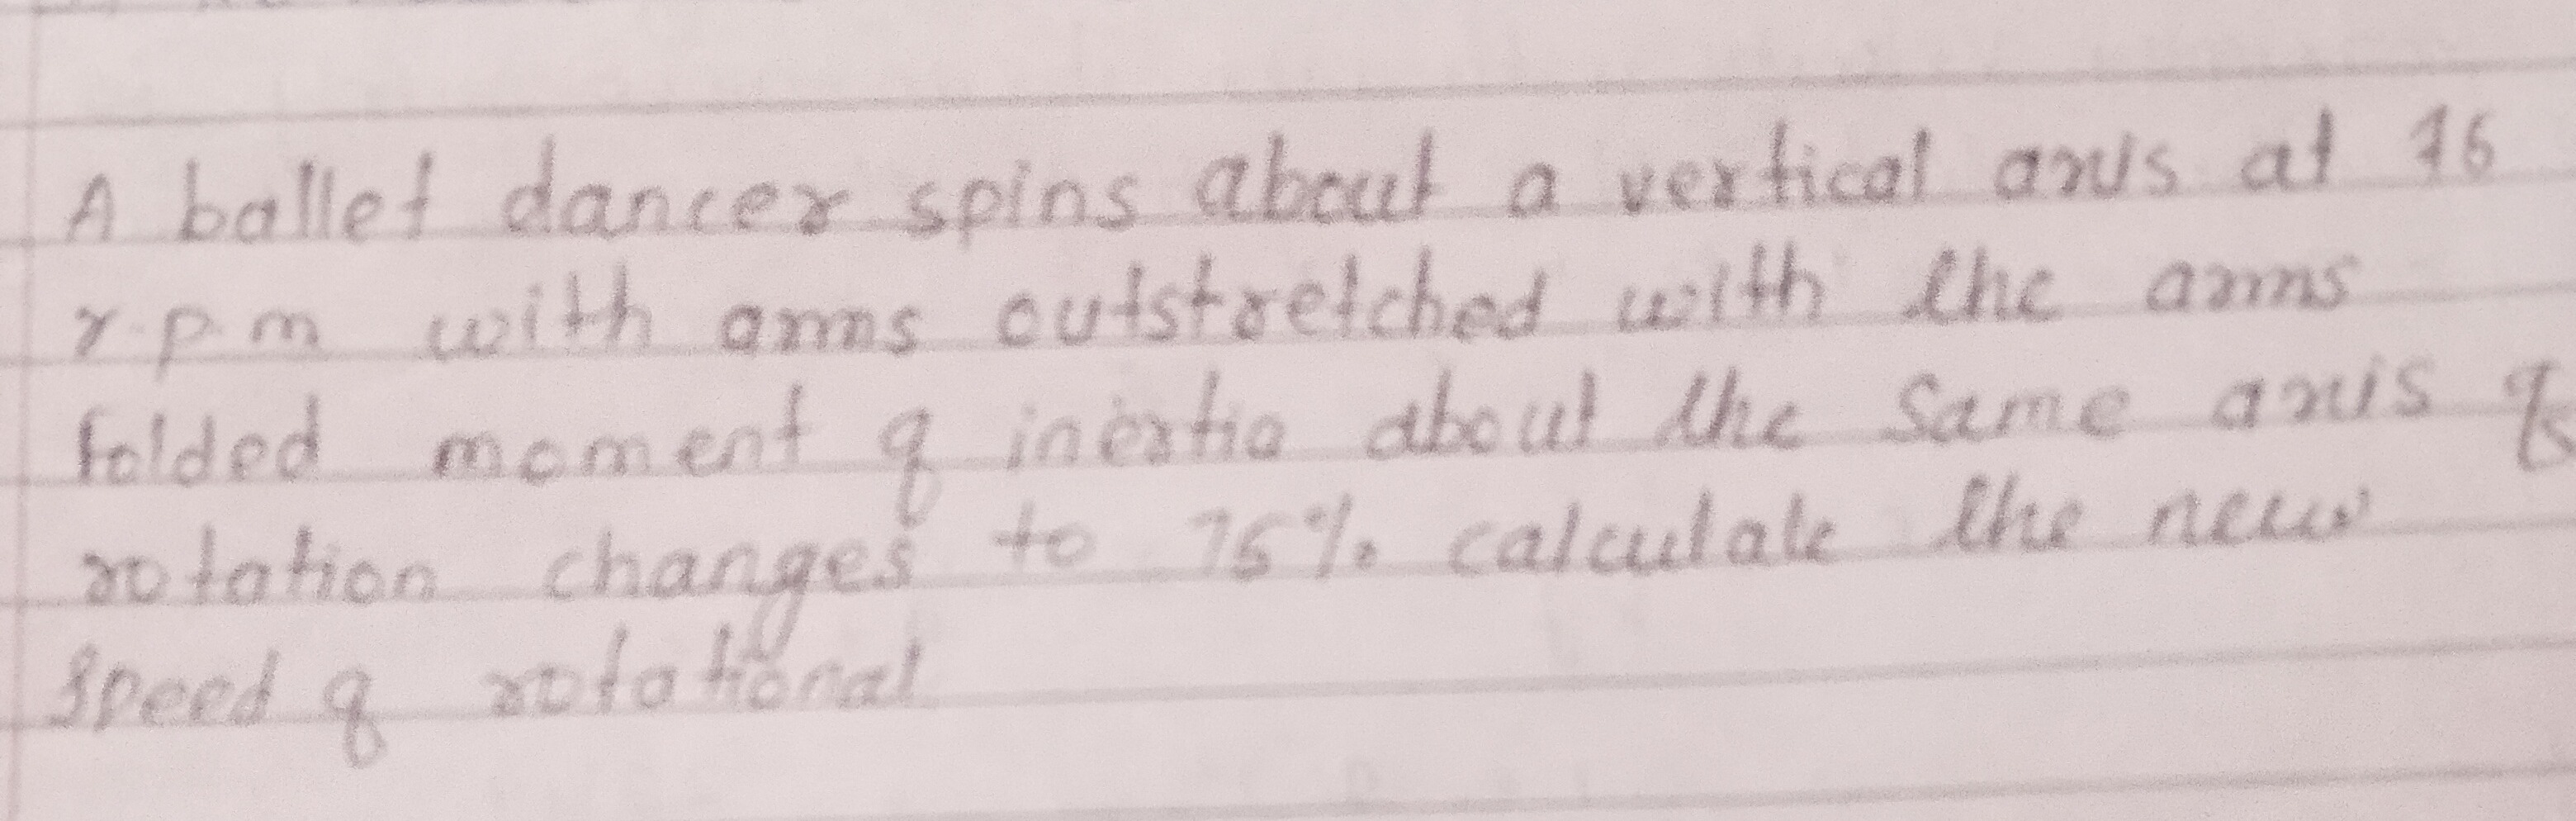 A ballet dancer spins about a vertical axis at 76
r.p.m with arms outstretched with the arms
folded moment of inertia about the same axis of
rotation changes to 75% calculate the new
speed of rotational